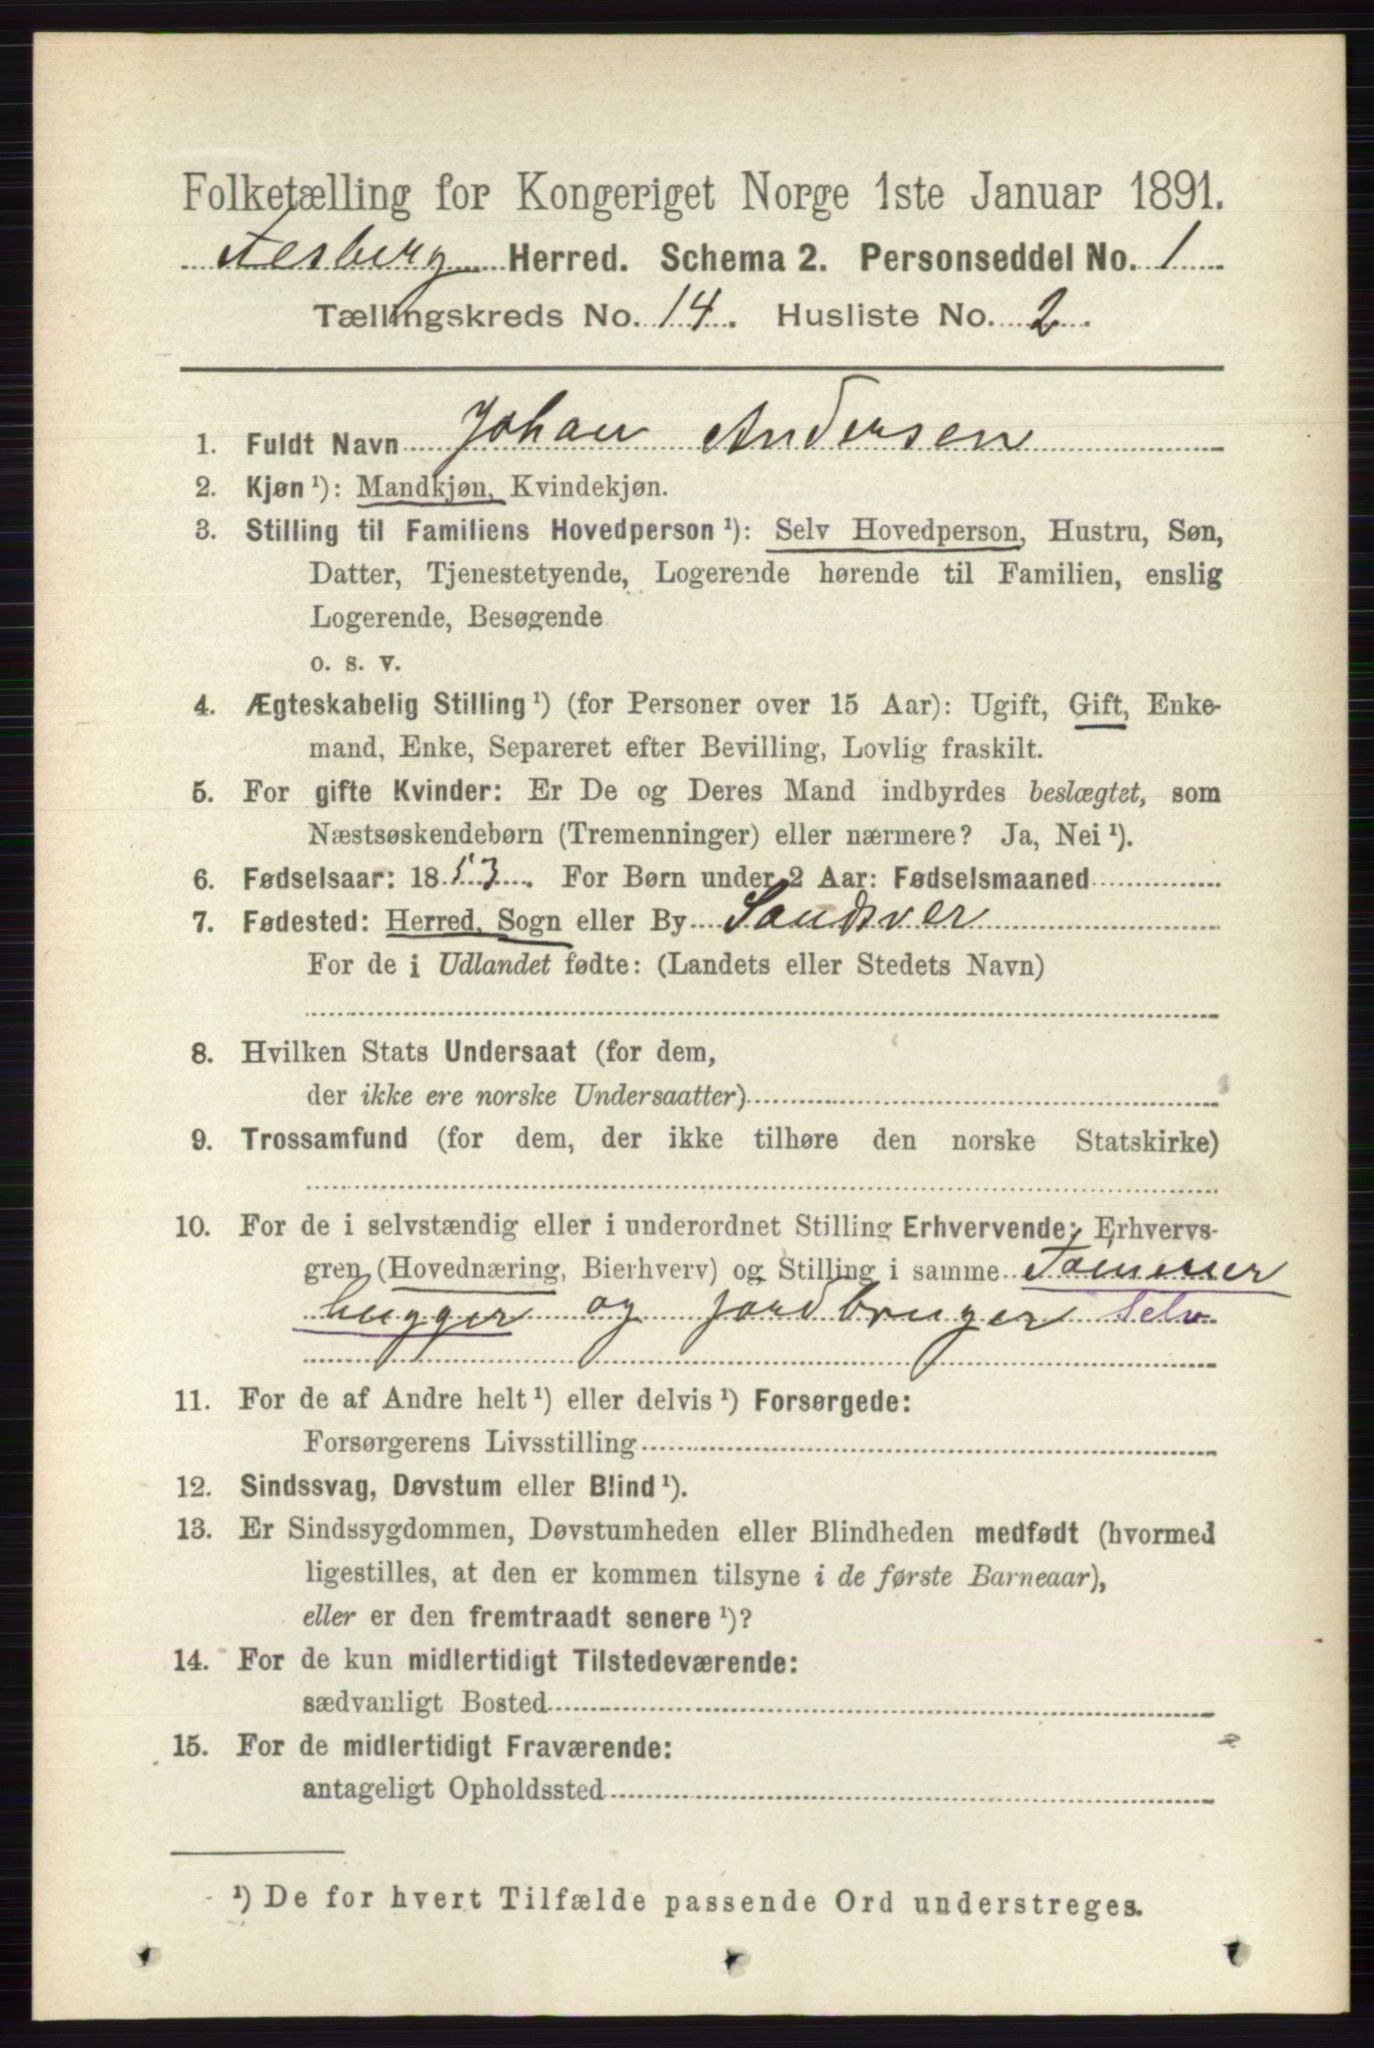 Folketælling for Kongeriget Norge 1ste Januar 1891.
Flesberg Herred. Schema 2. Personseddel No. 1
Tællingskreds No. 14. Husliste No. 2.
1. Fuldt Navn Johan Andersen
2. Kjøn ¹): Mandkjøn, Kvindekjøn.
3. Stilling til Familiens Hovedperson ¹): Selv Hovedperson, Hustru, Søn,
Datter, Tjenestetyende, Logerende hørende til Familien, enslig
Logerende, Besøgende
o. s. v.
4. Ægteskabelig Stilling ¹) (for Personer over 15 Aar): Ugift, Gift, Enke-
mand, Enke, Separeret efter Bevilling, Lovlig fraskilt.
5. For gifte Kvinder: Er De og Deres Mand indbyrdes beslægtet, som
Næstsøskendebørn (Tremenninger) eller nærmere? Ja, Nei ¹).
6. Fødselsaar: 1853. For Børn under 2 Aar: Fødselsmaaned
7. Fødested: Herred, Sogn eller By Sandsver
For de i Udlandet fødte: (Landets eller Stedets Navn)
8. Hvilken Stats Undersaat (for dem,
der ikke ere norske Undersaatter)
9. Trossamfund (for dem, der ikke tilhøre den norske Statskirke)
10. For de i selvstændig eller i underordnet Stilling Erhvervende: Erhvervs-
gren (Hovednæring, Bierhverv) og Stilling i samme Tømmer
hugger og jordbruger Selv
11. For de af Andre helt ¹) eller delvis ¹) Forsørgede:
Forsørgerens Livsstilling
12. Sindssvag, Døvstum eller Blind ¹).
13. Er Sindssygdommen, Døvstumheden eller Blindheden medfødt (hvormed
ligestilles, at den er kommen tilsyne i de første Barneaar),
eller er den fremtraadt senere ¹)?
14. For de kun midlertidigt Tilstedeværende:
sædvanligt Bosted
15. For de midlertidigt Fraværende:
antageligt Opholdssted
¹) De for hvert Tilfælde passende Ord understreges.